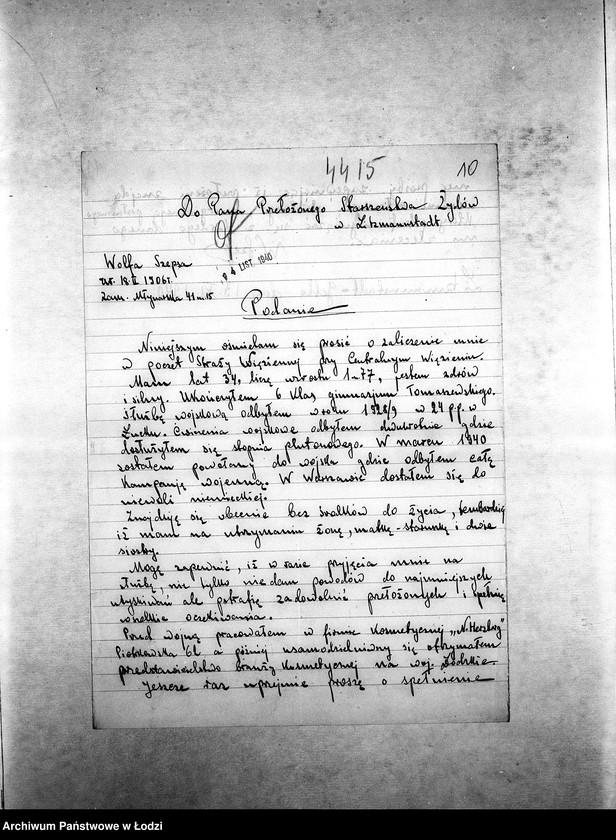 4415
10
Do Pana Przełożonego Starszeństwa Żydów
w Litzmannstadt
4 LIST. 1940
Wolfa Szepsa
ur. 18. II 1906 r.
zam. Młynarska 41 m 15
Podanie
Niniejszym ośmielam się prosić o zaliczenie mnie
w poczet Straży Więziennej przy Centralnym Więzieniu.
Mam lat 34, liczę wzrostu 1-77, jestem zdrów
i silny. Ukończyłem 6 klas gimnazjum Tomaszewskiego.
Służbę wojskową odbyłem w roku 1928/9 w 24 p.p. w
Łucku. Ćwiczenia wojskowe odbyłem dwukrotnie gdzie
dosłużyłem się stopnia plutonowego. W marcu 1940
zostałem powołany do wojska gdzie odbyłem całą
Kampanję wojenną. W Warszawie dostałem się do
niewoli niemieckiej.
Znajduję się obecnie bez środków do życia, bardziej
iż mam na utrzymaniu żonę, matkę-staruszkę i dwie
siostry.
Mogę zapewnić, iż w razie przyjęcia mnie na
służbę, nie tylko nie dam powodów do najmniejszych
utyskiwań ale potrafię zadowolnić przełożonych i spełnię
wszelkie oczekiwania.
Przed wojną pracowałem w firmie Kosmetycznej „N. Herzberg"
Piotrkowska 62 a później usamodzielniwszy się otrzymałem
przedstawicielstwo branży Kosmetycznej na woj. Łódzkie.
Jeszcze raz uprzejmie proszę o spełnienie
Archiwum Państwowe w Łodzi